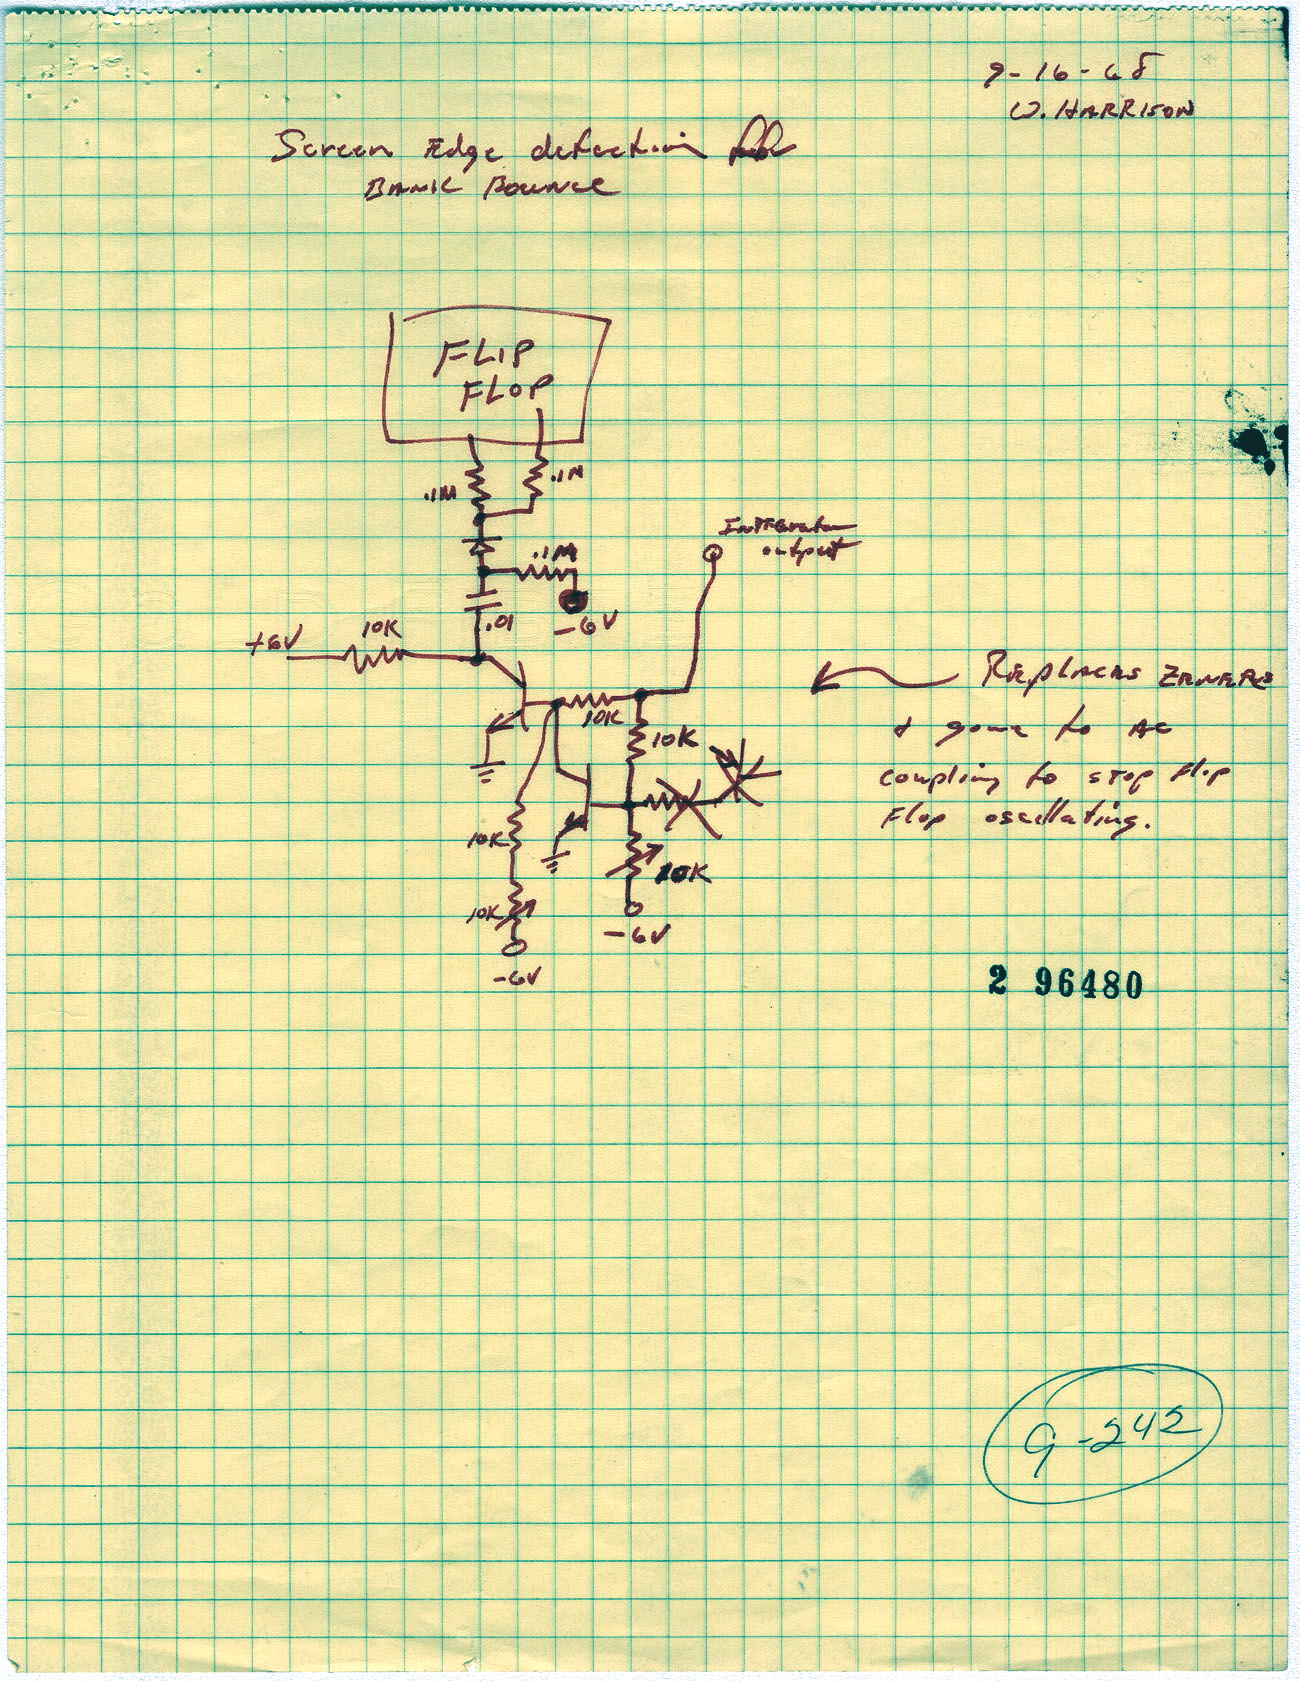 9-16-68
W. HARRISON
Screen Edge detection
BANK BOUNCE
FLIP
FLOP
.1M
.1M
Integrator
output
.1M
.01
-6V
+6V
10K
10K
Replaces ZENERS
+ gone to AC
coupling to stop flip
Flop oscillating.
10K
10K
10K
10K
-6V
-6V
2 96480
9-242